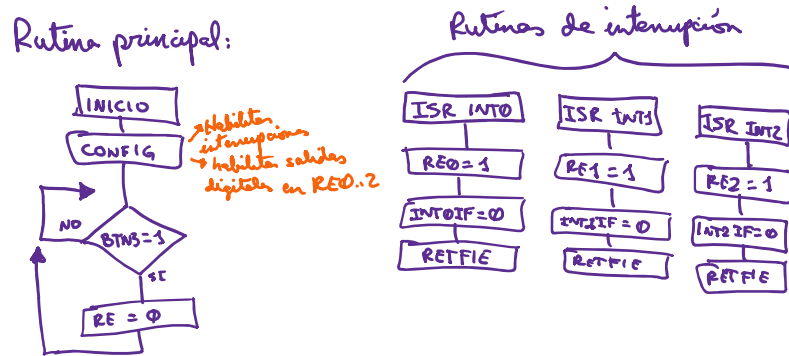 Rutina principal:
INICIO
CONFIG
→ Habilitar
interrupciones
→ habilitar salidas
digitales en RE0..2
NO
BTN3=1
SI
RE = 0
Rutinas de interrupción
ISR INT0
RE0=1
INT0IF=0
RETFIE
ISR INT1
RE1=1
INT1IF=0
RETFIE
ISR INT2
RE2=1
INT2IF=0
RETFIE